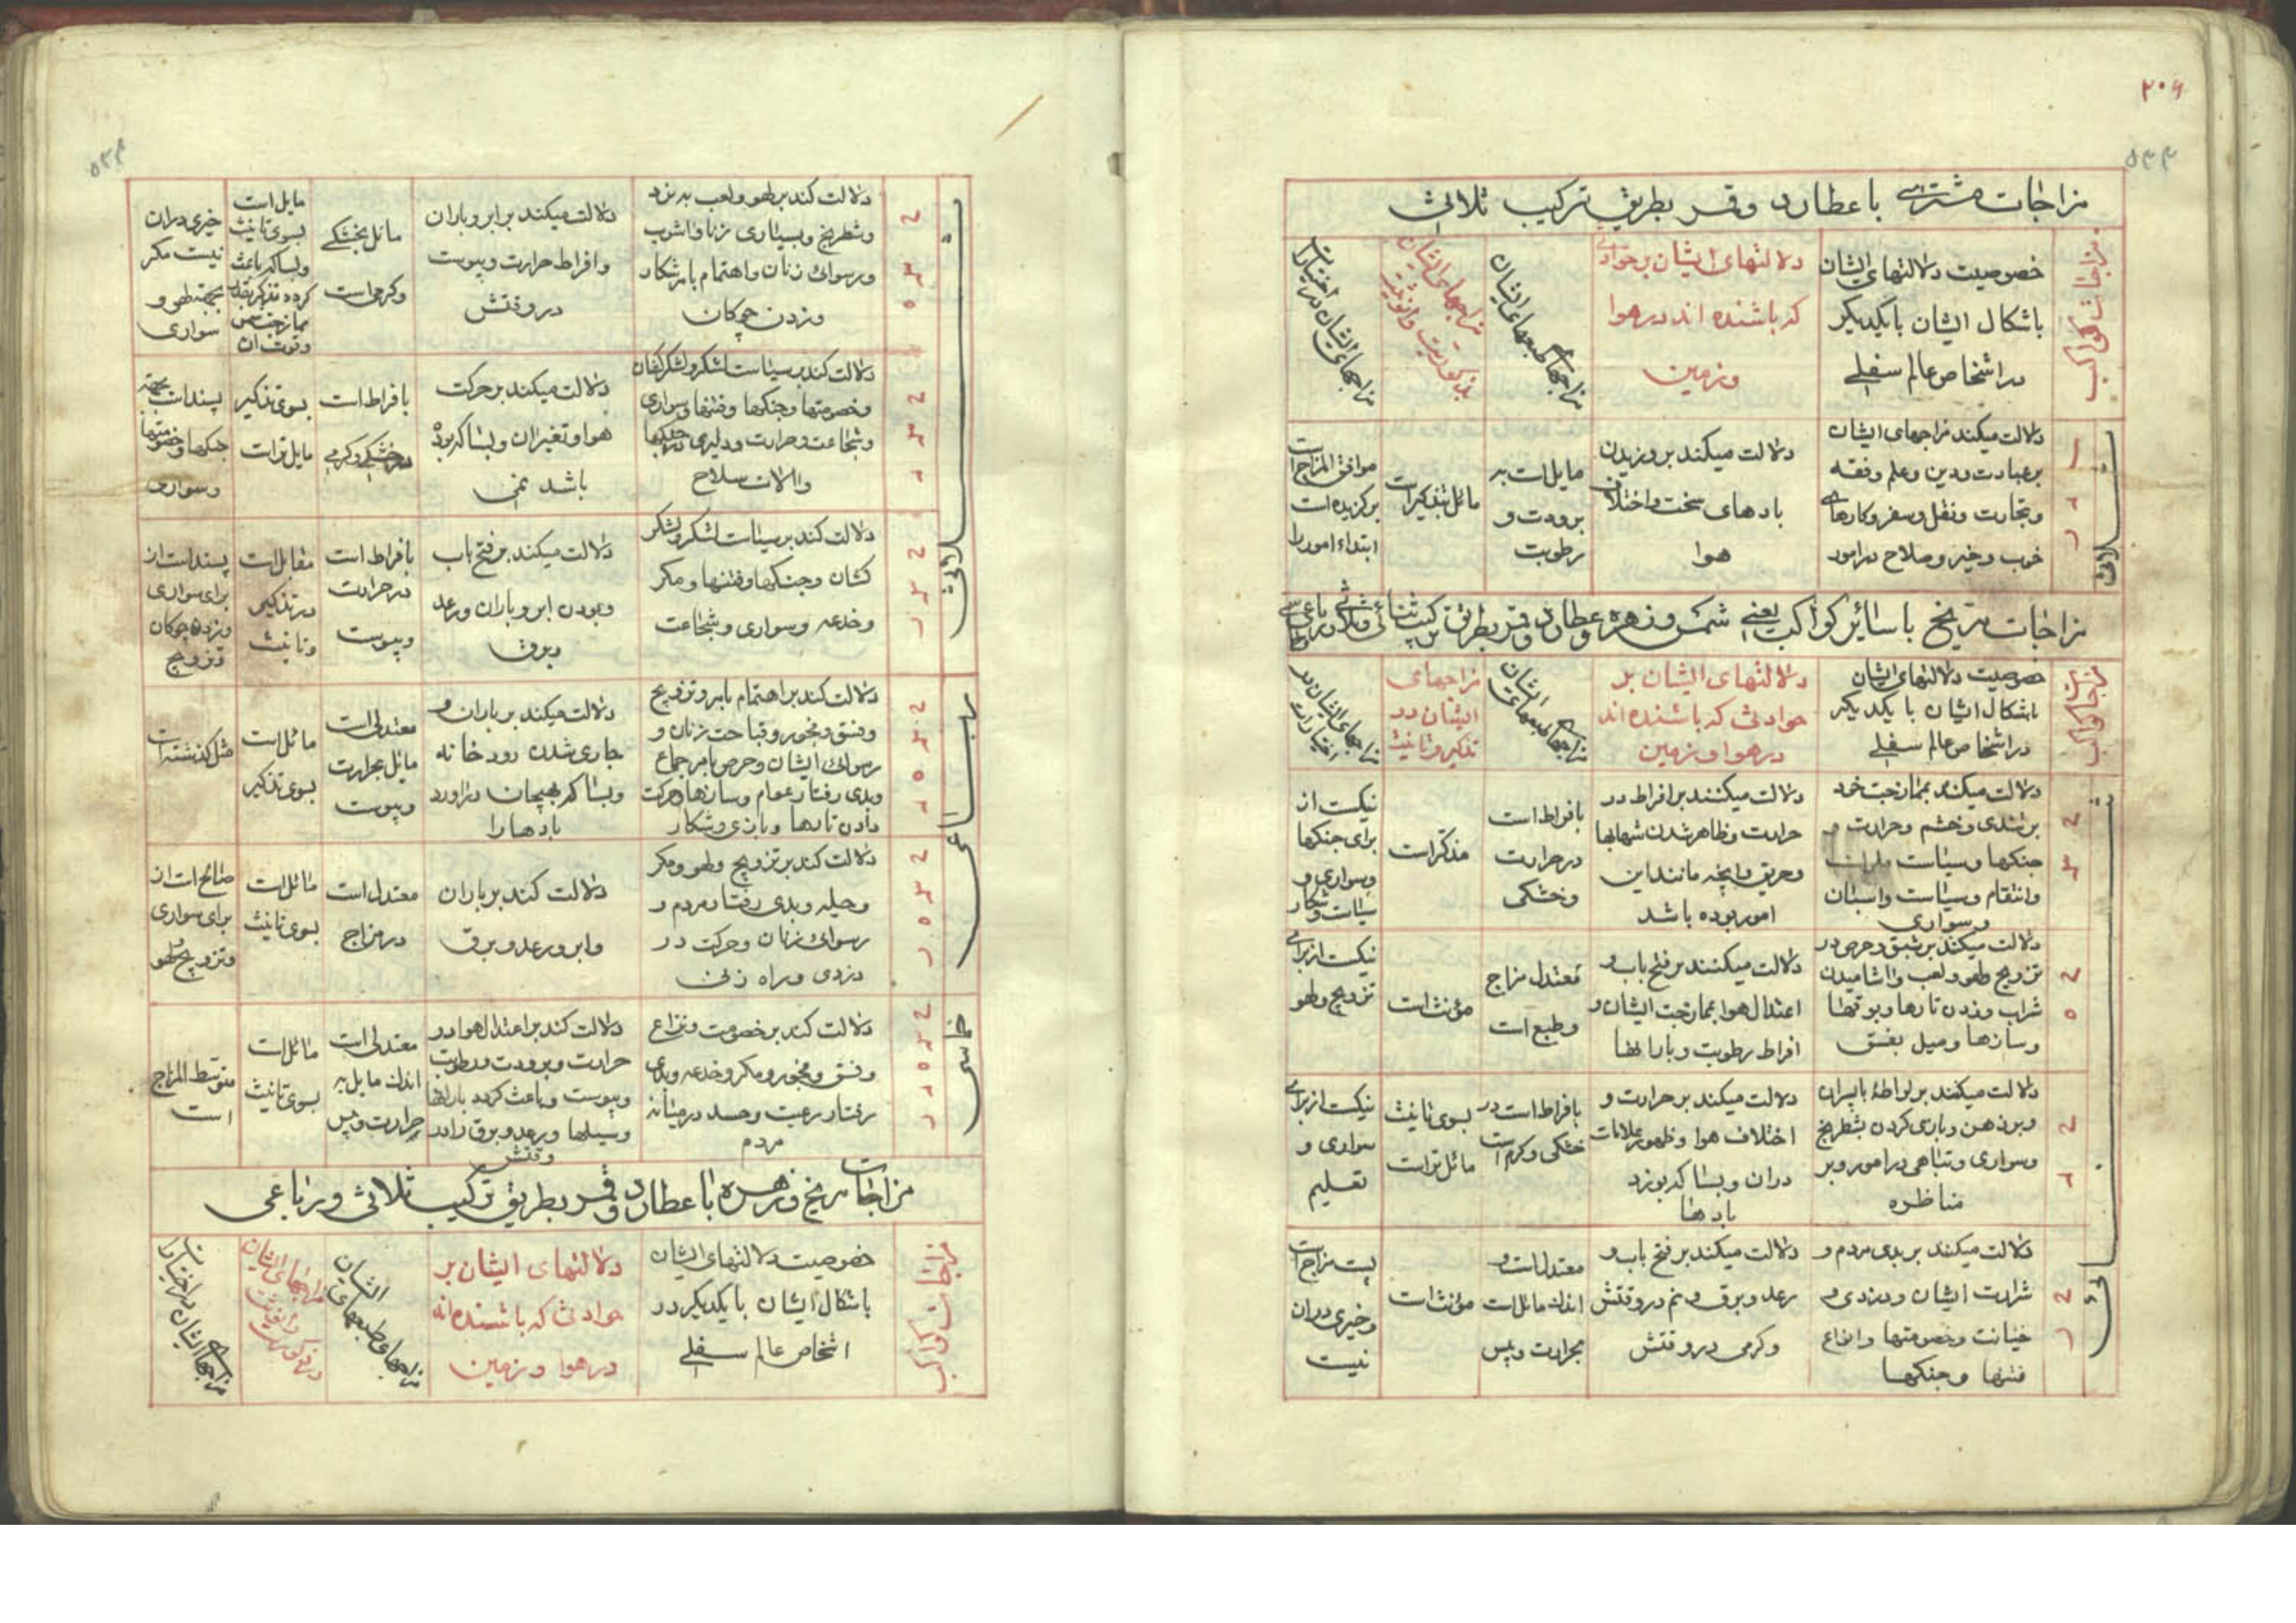 ۳۰۶
۵۳۳
مزاجات مشتری با عطارد و قمر بطریق ترکیب ثلاثی
مزاجات کواکب
خصوصیت دلالتهای ایشان
باشکال ایشان بایکدیکر
در اشخاص عالم سفلی
دلالتهای ایشان بر حوادثی
که باشنده اند در هوا
و زمین
مزاجهای طبعهای ایشان
مزاجهای ایشان
بذکوریت و انوثیت
مزاجهای ایشان در اختیارات
ثلاثی
دلالت میکند مزاجهای ایشان
بر عبادت و دین و علم و فقه
و تجارت و نقل و سفر و کارهای
خوب و خیر و صلاح در امور
دلالت میکند بر وزیدن
بادهای سخت و اختلاف
هوا
مایل است به
برودت و
رطوبت
مائل بتذکیر است
موافق المزاج است
برکزیده است
ابتداء امور را
مزاجات مریخ با سائر کواکب یعنی شمس و زهره و عطارد و قمر بطریق ترکیب ثنائی و ثلاثی و رباعی و خماسی
مزاجات کواکب
خصوصیت دلالتهای ایشان
باشکال ایشان با یکدیکر
در اشخاص عالم سفلی
دلالتهای ایشان بر
حوادثی که باشنده اند
در هوا و زمین
مزاجهای طبعهای ایشان
مزاجهای
ایشان در
تذکیر و تانیث
مزاجهای ایشان در
اختیارات
ثنائی
دلالت میکند بممازجت خود
بر تندی و خشم و حرارت و
جنکها و سیاست
و انتقام و سیاست و اسبان
و سواری
دلالت میکنند بر افراط در
حرارت و ظاهر شدن شهابها
و حریق و انچه مانند این
امور بوده باشد
بافراط است
در حرارت
و خشکی
مذکر است
نیکست از
برای جنکها
و سواری و
سیاست و شکار
دلالت میکند بر شبق و حرص در
تزویج و لهو و لعب و اشامیدن
شراب و زدن تارها و بوقها
و سازها و میل بفسق
دلالت میکنند بر فتح باب و
اعتدال هوا بممازجت ایشان و
افراط رطوبت و بارانها
معتدل مزاج
و طبع است
مؤنث است
نیکست از برای
تزویج و لهو
دلالت میکنند بر لواطهٔ باپسران
و بر ذهن و بازی کردن بشطرنج
و سواری و تباهی در امور و بر
مناظره
دلالت میکند بر حرارت و
اختلاف هوا و ظهور علامات
دران و بسا که بوزد
بادها
بافراط است در
خشکی و کرم است
بسوی تانیث
مائل تر است
نیکست از برای
سواری و
تعلیم
دلالت میکند بر بدی مردم و
شرارت ایشان و دزدی و
خیانت و خصومتها و انواع
فتنها و جنکها
دلالت میکند بر فتح باب و
رعد و برق و نم در وقتش
و کرمی در وقتش
معتدل است و
اندک مائل است
بحرارت و یبس
مؤنث است
پست مزاج است
و خیری دران
نیست
۵۳۴
ثلاثی
دلالت کند بر لهو و لعب به نرد
و شطرنج و بسیاری زنا و اشوب
و رسوائی زنان و اهتمام بامر شکار
و زدن چوکان
دلالت میکند بر ابر و باران
و افراط حرارت و یبوست
در وقتش
مائل بخشکی
و کرمی است
مایل است
بسوی تانیث
و بسا که باعث
کردد تذکیر
بممازجت
و قوت ان
خیری دران
نیست مکر
بجهة لهو و
سواری
دلالت کند بر سیاست لشکر و لشکرکشان
و خصومتها و جنکها و فتنها و سواری
و شجاعت و حرارت و دلیری در جنکها
و الات سلاح
دلالت میکند بر حرکت
هوا و تغیر ان و بسا که بوده
باشد نمی
بافراط است
در خشکی و کرمی
بسوی تذکیر
مایل تر است
پسند است بجهة
جنکها و خصومتها
و سواری
دلالت کند بر سیاست لشکر و لشکر
کشان و جنکها و فتنها و مکر
و خدعه و سواری و شجاعت
دلالت میکند بر فتح باب
و بودن ابر و باران و رعد
و برق
بافراط است
در حرارت
و یبوست
مقابل است
در تذکیر
و تانیث
پسند است از
برای سواری
و زدن چوکان
و تزویج
رباعی
دلالت کند بر اهتمام بامر و تزویج
و فسق و فجور و قباحت زنان و
رسوائی ایشان و حرص بامر جماع
و بدی رفتار عوام و سازها و حرکت
دادن تارها و بازی و شکار
دلالت میکند بر باران و
جاری شدن رودخانه
و بسا که بهیجان دراورد
بادها را
معتدل است
مائل بحرارت
و یبوست
مائل است
بسوی تذکیر
مثل کذشته است
دلالت کند بر تزویج و لهو و مکر
و حیله و بدی رفتار مردم و
رسوائی زنان و حرکت در
دزدی و راه زنی
دلالت کند بر باران
و ابر و رعد و برق
معتدل است
در مزاج
مائل است
بسوی تانیث
صالح است از
برای سواری
و تزویج و لهو
خماسی
دلالت کند بر خصومت و نزاع
و فسق و فجور و مکر و خدعه و بدی
رفتار رعیت و حسد در میانه
مردم
دلالت کند بر اعتدال هوا در
حرارت و برودت و رطوبت
و یبوست و باعث کردد بارانها
و سیلها و رعد و برق را در
وقتش
معتدل است
اندک مایل به
حرارت و یبس
مائل است
بسوی تانیث
متوسط المزاج
است
مزاجات مریخ و زهره با عطارد و قمر بطریق ترکیب ثلاثی و رباعی
مزاجات کواکب
خصوصیت دلالتهای ایشان
باشکال ایشان بایکدیکر در
اشخاص عالم سفلی
دلالتهای ایشان بر
حوادثی که باشنده اند
در هوا و زمین
مزاجهای طبعهای ایشان
مزاجهای ایشان
در ذکوریت و انوثیت
مزاجهای ایشان در اختیارات